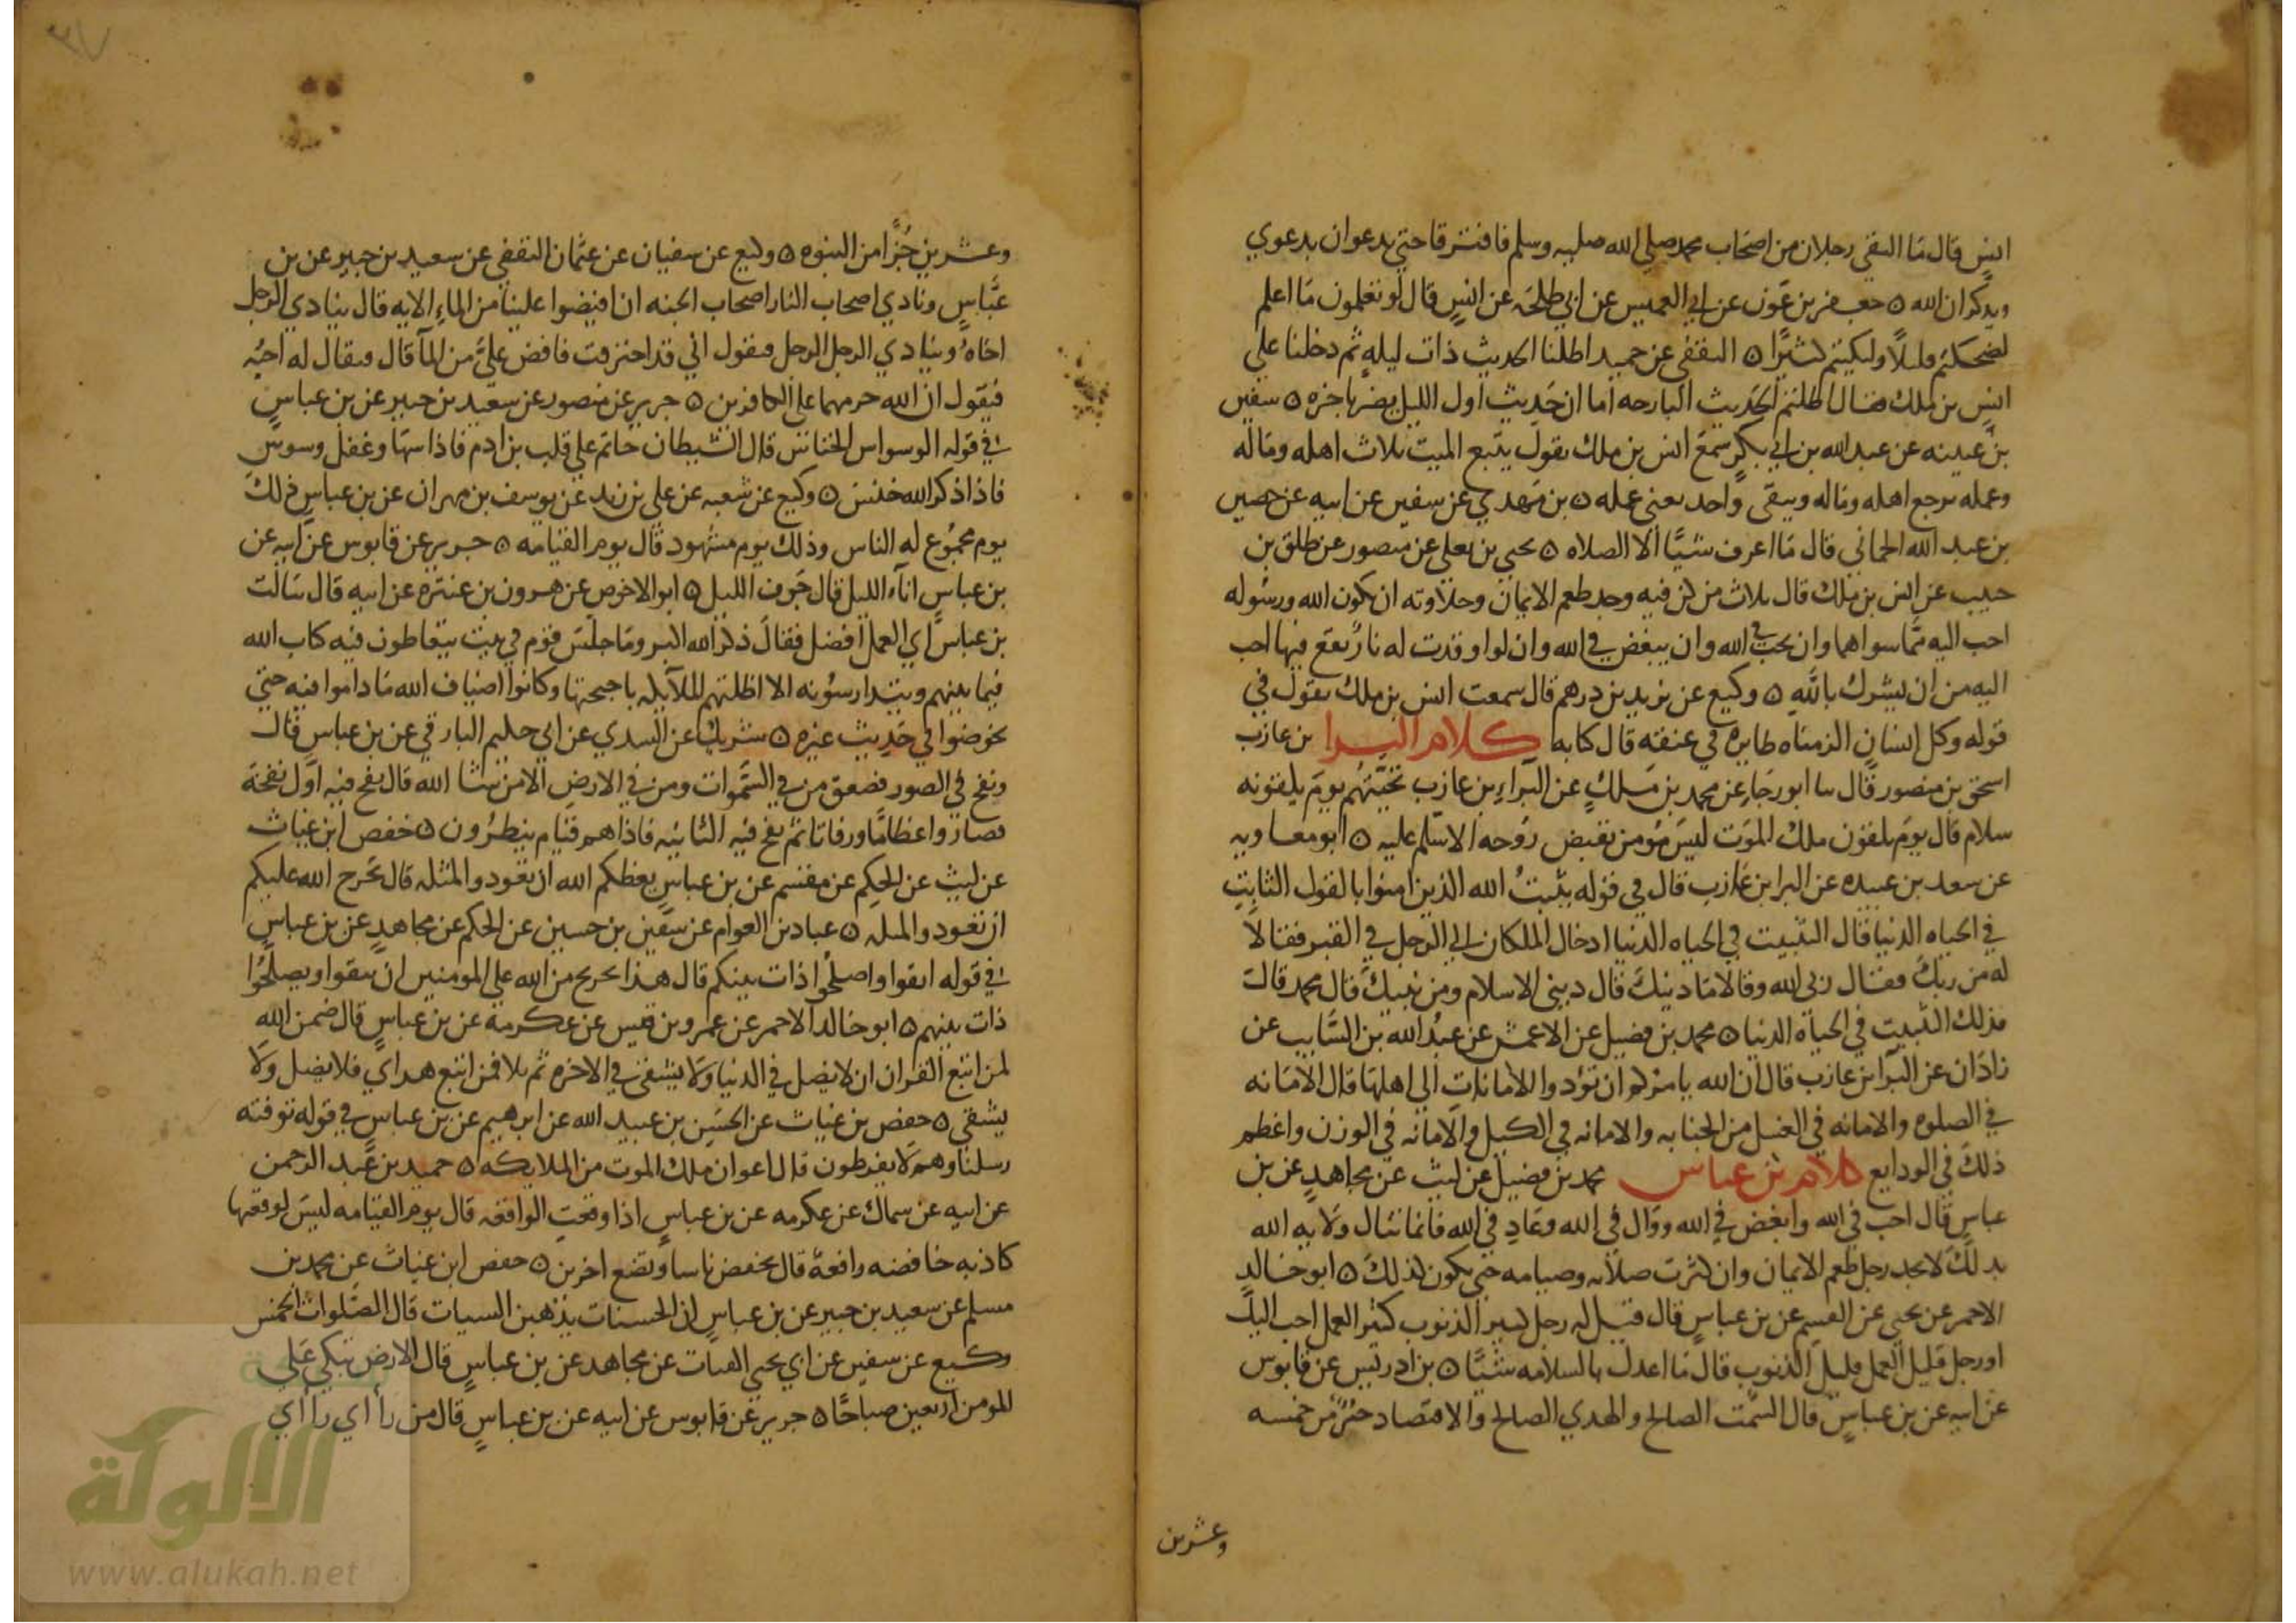 انس قال ما التقى رجلان من اصحاب محمد صلى الله عليه وسلم فافترقا حتى يدعوان بدعوي
ويذكران الله ٥ جعفر بن عون عن ابي العميس عن ابي طلحة عن انس قال لو تعلمون ما اعلم
لضحكتم قليلا ولبكيتم كثيرا ٥ الثقفي عن حميد اطلنا الحديث ذات ليله ثم دخلنا علي
انس بن ملك فقال اطلتم الحديث البارحه اما ان حديث اول الليل يضر باخره ٥ سفين
بن عيينه عن عبد الله بن ابي بكر سمع انس بن ملك يقول يتبع الميت ثلاث اهله وماله
وعمله يرجع اهله وماله ويبقى واحد يعني عمله ٥ بن مهدي عن سفين عن ابيه عن حصين
بن عبد الله الحماني قال ما اعرف شيا الا الصلاه ٥ يحيي بن يعلي عن منصور عن طلق بن
حبيب عن انس بن ملك قال ثلاث من كن فيه وجد طعم الايمان وحلاوته ان يكون الله ورسوله
احب اليه مما سواهما وان يحب في الله وان يبغض في الله وان لو اوقدت له نار يقع فيها احب
اليه من ان يشرك بالله ٥ وكيع عن يزيد بن درهم قال سمعت انس بن ملك يقول في
قوله وكل انسان الزمناه طايره في عنقه قال كتابه كلام البرا بن عازب
اسحق بن منصور قال سا ابو رجاء عن محمد بن ملك عن البراء بن عازب تحيتهم يوم يلقونه
سلام قال يوم يلقون ملك الموت ليس مومن تقبض روحه الا سلم عليه ٥ ابو معاويه
عن سعد بن عبيده عن البرا بن عازب قال في قوله يثبت الله الذين امنوا بالقول الثابت
في الحياه الدنيا قال التثبيت في الحياه الدنيا اذا دخل الملكان الي الرجل في القبر فقالا
له من ربك فقال ربي الله وقالا ما دينك قال ديني الاسلام ومن نبيك قال محمد قالت
فذلك التثبيت في الحياة الدنيا ٥ محمد بن فضيل عن الاعمش عن عبد الله بن السايب عن
زاذان عن البرا بن عازب قال ان الله يامركم ان تؤدوا الامانات الى اهلها قال الامانه
في الصلوه والامانه في الغسل من الجنابه والامانه في الكيل والامانه في الوزن واعظم
ذلك في الودايع كلام بن عباس محمد بن فضيل عن ليث عن مجاهد عن بن
عباس قال احب في الله وابغض في الله ووال في الله وعاد في الله فانما تنال ولايه الله
بذلك لا يجد رجل طعم الايمان وان كثرت صلاته وصيامه حتى يكون كذلك ٥ ابو خالد
الاحمر عن يحيي عن القسم عن بن عباس قال قيل له رجل كثير الذنوب كثير العمل احب اليك
او رجل قليل العمل قليل الذنوب قال ما اعدل بالسلامه شيا ٥ بن ادريس عن قابوس
عن ابيه عن بن عباس قال السمت الصالح والهدي الصالح والاقتصاد جزء من خمسه
وعشرين
وعشرين جزا من النبوه ٥ وكيع عن سفيان عن عثمان الثقفي عن سعيد بن جبير عن بن
عباس ونادي اصحاب النار اصحاب الجنه ان افيضوا علينا من الماء الايه قال ينادي الرجل
اخاه وينادي الرجل الرجل فيقول اني قد احترقت فافض علي من الما قال فيقال له اجبه
فيقول ان الله حرمهما على الكافرين ٥ جرير عن منصور عن سعيد بن جبير عن بن عباس
في قوله الوسواس الخناس قال الشيطان جاثم علي قلب بن ادم فاذا سها وغفل وسوس
فاذا ذكر الله خنس ٥ وكيع عن شعبه عن علي بن زيد عن يوسف بن مهران عن بن عباس ذلك
يوم مجموع له الناس وذلك يوم مشهود قال يوم القيامه ٥ جرير عن قابوس عن ابيه عن
بن عباس اناء الليل قال جوف الليل ٥ ابو الاحوص عن هرون بن عنتره عن ابيه قال سالت
بن عباس اي العمل افضل فقال ذكر الله اكبر وما جلس قوم في بيت يتعاطون فيه كتاب الله
فيما بينهم ويتدارسونه الا اظلتهم الملايكه باجنحتها وكانوا اضياف الله ما داموا فيه حتى
يخوضوا في حديث غيره ٥ شريك عن السدي عن ابي حكيم البارقي عن بن عباس قال
ونفخ في الصور فصعق من في السموات ومن في الارض الا من شا الله قال نفخ فيه اول نفخة
فصاروا عظاما ورفاتا ثم نفخ فيه الثانيه فاذا هم قيام ينظرون ٥ حفص ابن غياث
عن ليث عن الحكم عن مقسم عن بن عباس يعظكم الله ان تعودوا لمثله قال يحرج الله عليكم
ان تعودوا لمثله ٥ عباد بن العوام عن سفين بن حسين عن الحكم عن مجاهد عن بن عباس
في قوله اتقوا واصلحوا ذات بينكم قال هذا تحريج من الله علي المومنين ان يتقوا ويصلحوا
ذات بينهم ٥ ابو خالد الاحمر عن عمرو بن قيس عن عكرمه عن بن عباس قال ضمن الله
لمن اتبع القران ان لا يضل في الدنيا ولا يشقى في الاخره ثم تلا فمن اتبع هداي فلا يضل ولا
يشقي ٥ حفص بن غياث عن الحسن بن عبيد الله عن ابرهيم عن بن عباس في قوله توفته
رسلنا وهم لا يفرطون قال اعوان ملك الموت من الملايكه ٥ حميد بن عبد الرحمن
عن ابيه عن سماك عن عكرمه عن بن عباس اذا وقعت الواقعه قال يوم القيامه ليس لوقعتها
كاذبه خافضه رافعة قال يخفض ناسا ويضع اخرين ٥ حفص ابن غياث عن محمد بن
مسلم عن سعيد بن جبير عن بن عباس ان الحسنات يذهبن السيات قال الصلوات الخمس
وكيع عن سفين عن ابي يحيي القتات عن مجاهد عن بن عباس قال الارض تبكي علي
المومن اربعين صباحا ٥ جرير عن قابوس عن ابيه عن بن عباس قال من راأي راأي
الألوكة
www.alukah.net